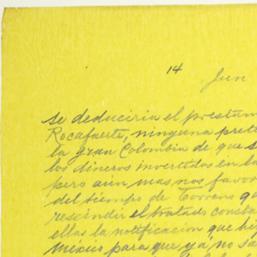 14
Jun
se deduciria el prestam
Rocafuerte, ninguna prete
la gran Colombia de que s
los dineros invertidos en la
pero aun mas, nos favor
del tiempo de Torrens q
rescindir el tratado consta
ellas la notificacion que hi
México para que yá no sa